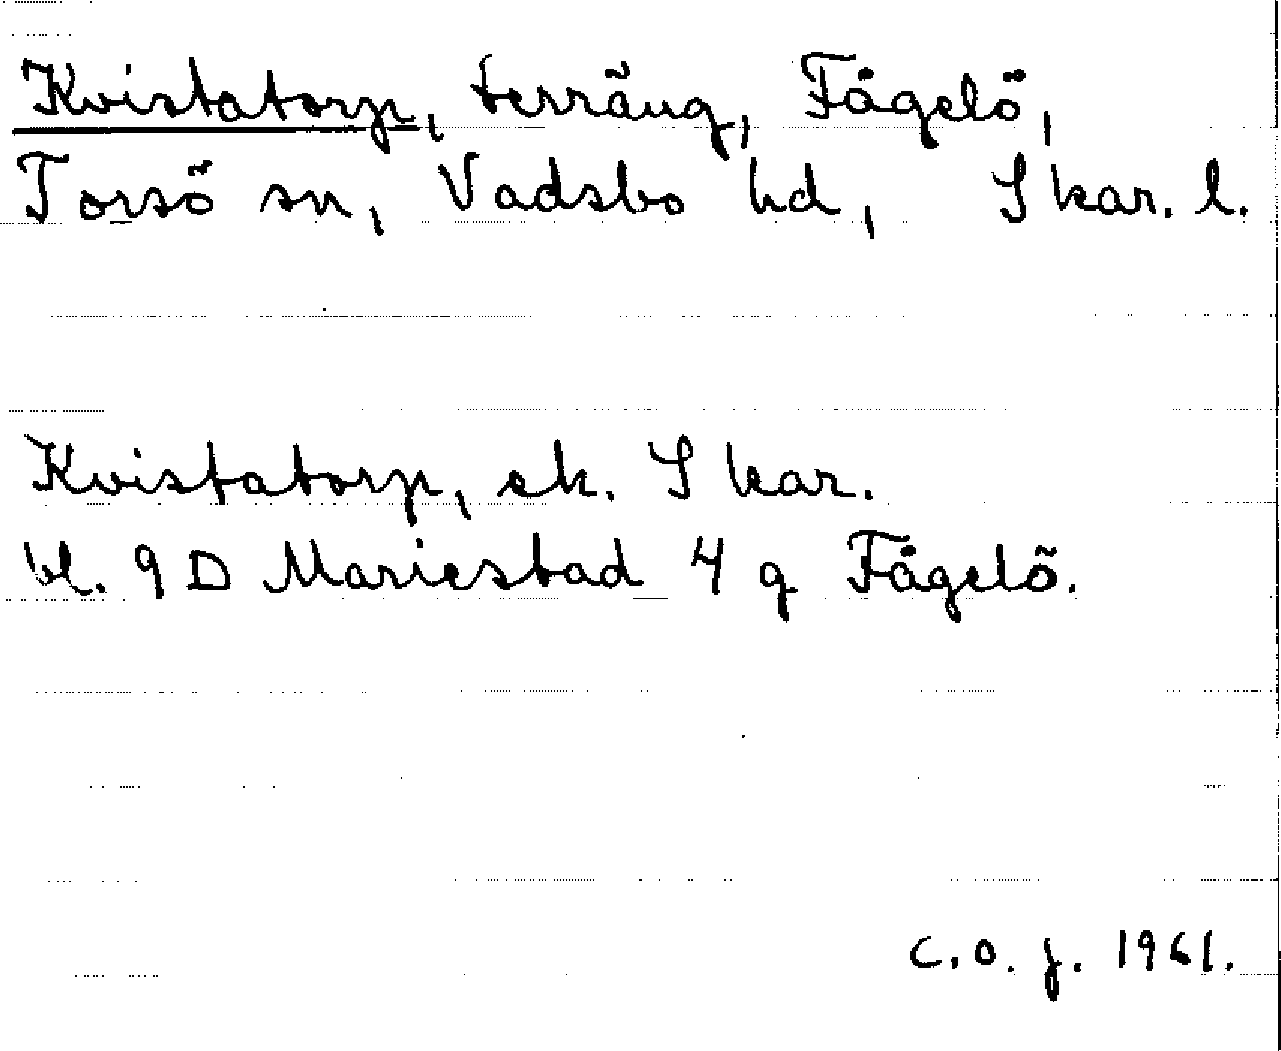 Kvistatorp, terräng, Fågelö,
Torsö sn, Vadsbo hd, Skar. l.
Kvistatorp, ek. Skar.
bl. 9 D Mariestad 4 g Fågelö.
C. O. J. 1961.